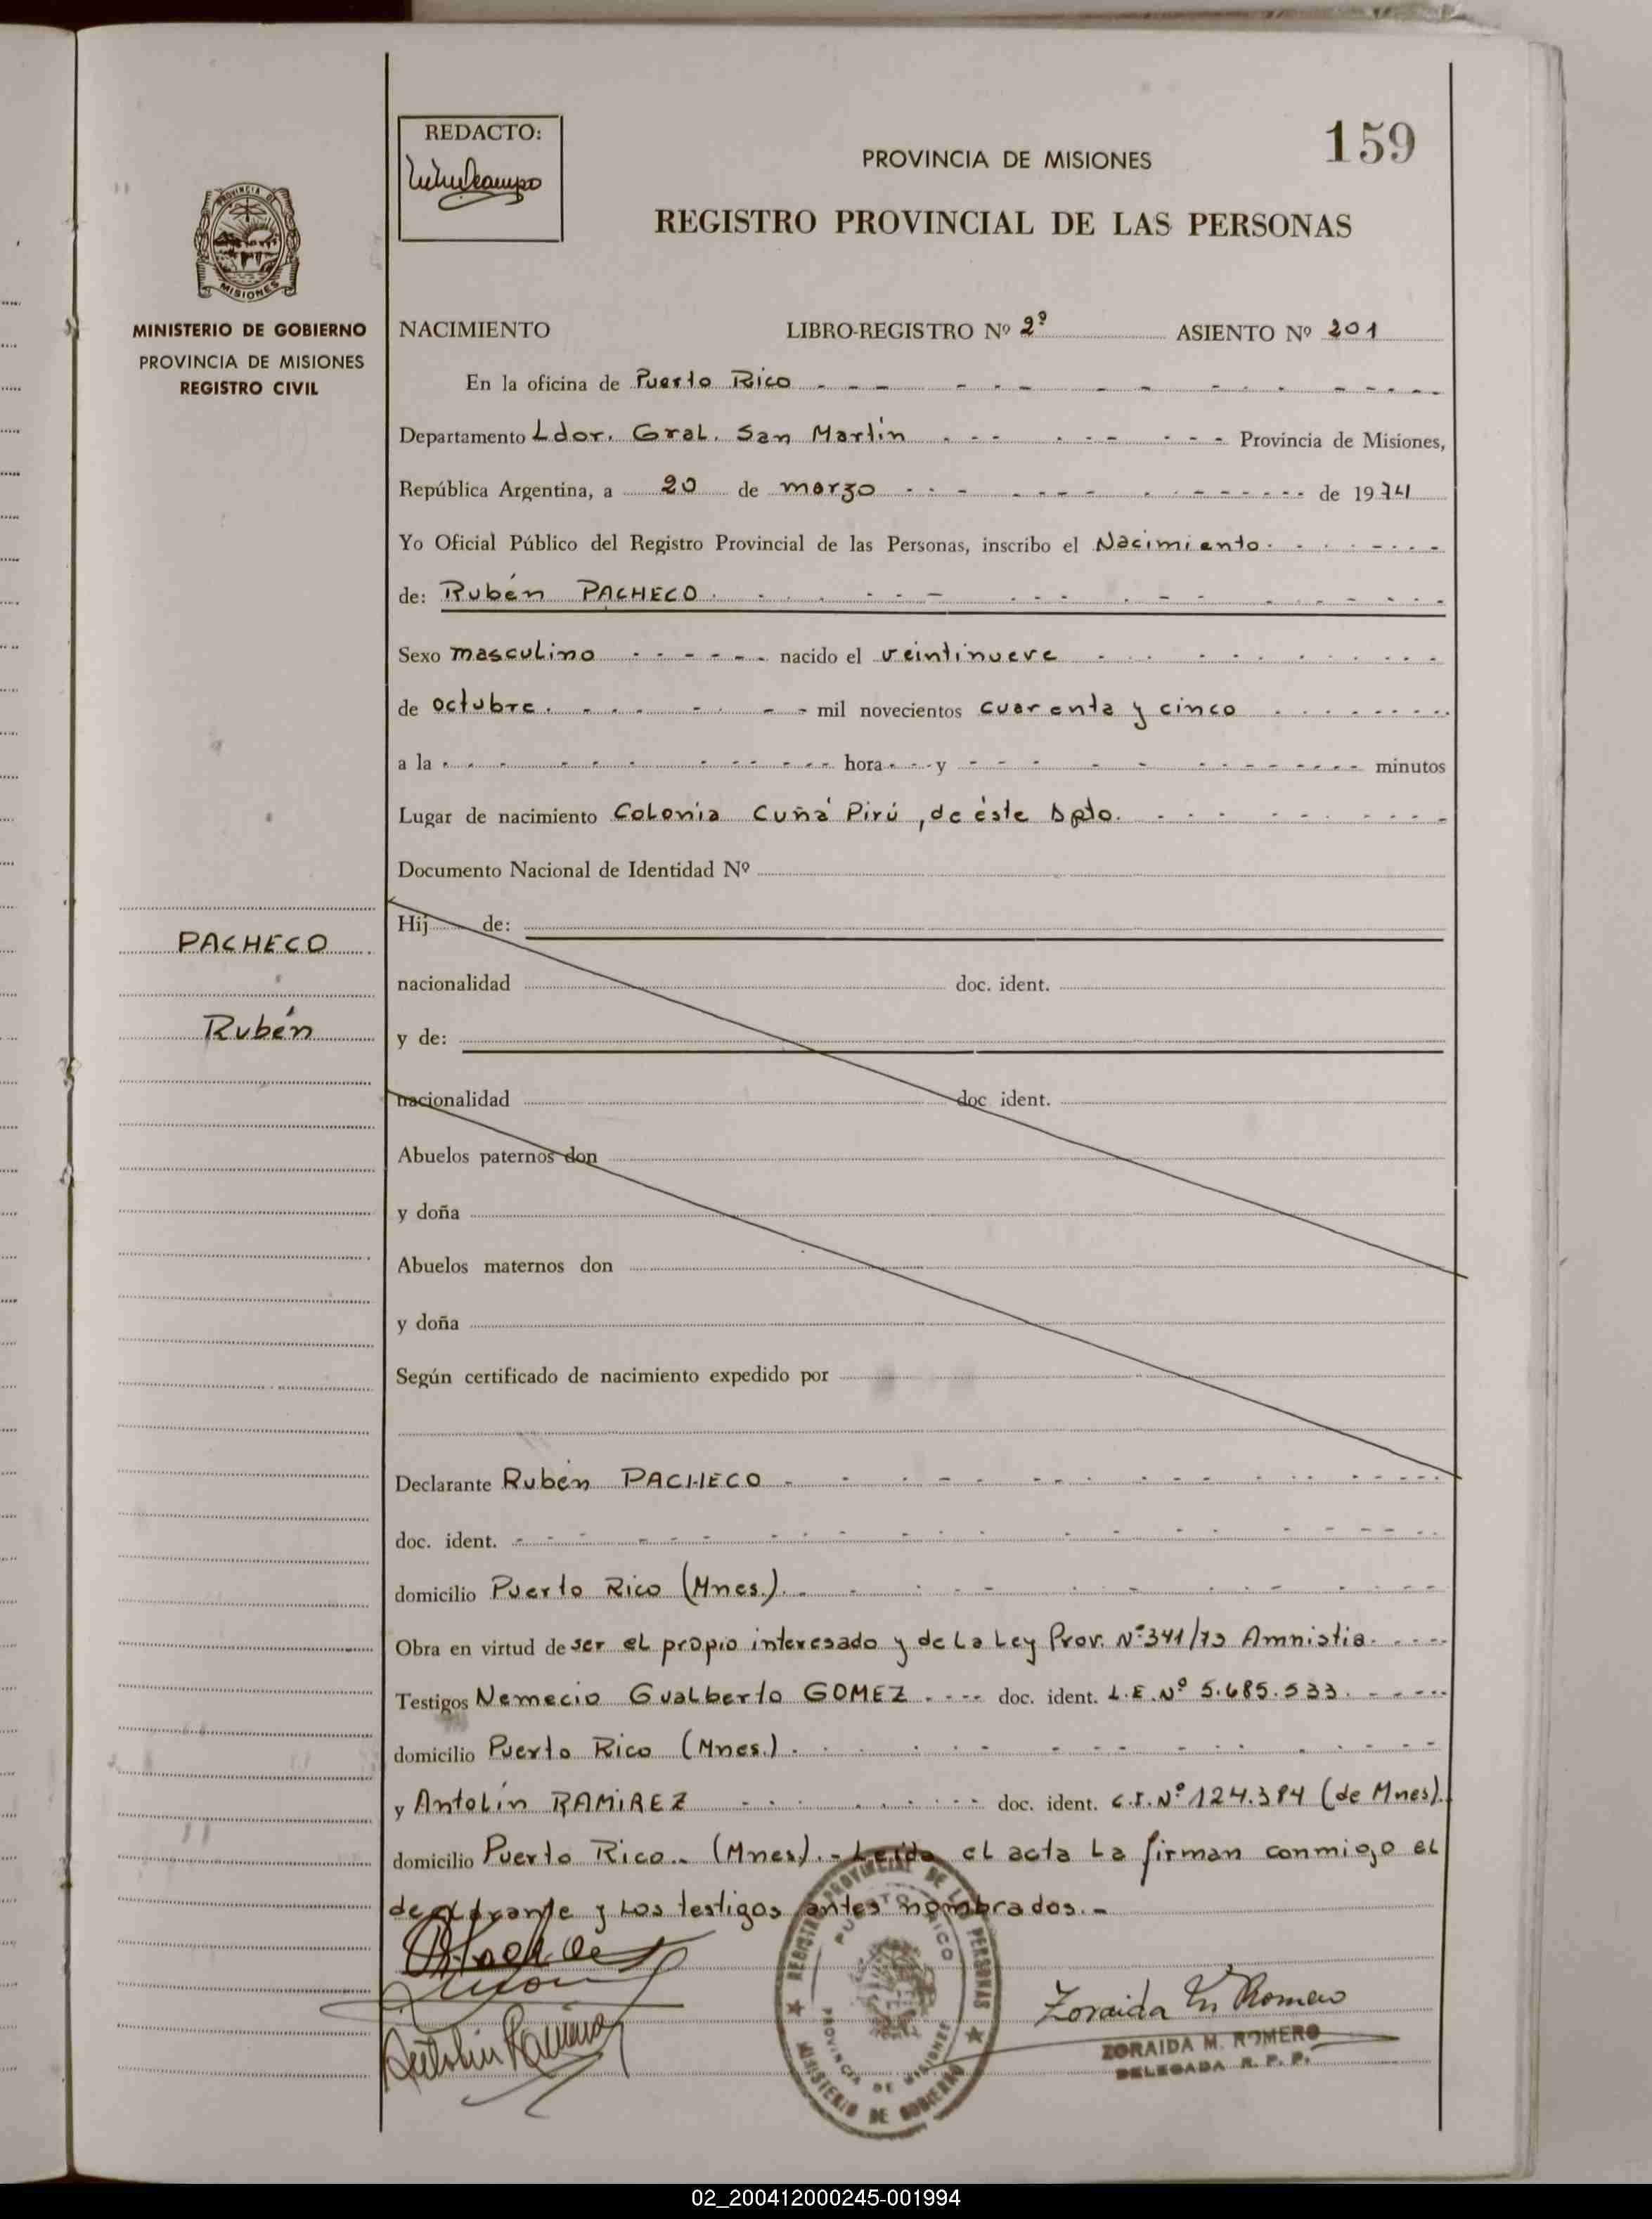 REDACTO:
159
PROVINCIA DE MISIONES
REGISTRO PROVINCIAL DE LAS PERSONAS
PROVINCIA DE
MISIONES
MINISTERIO DE GOBIERNO
PROVINCIA DE MISIONES
REGISTRO CIVIL
NACIMIENTO LIBRO-REGISTRO Nº 2º ASIENTO Nº 201
En la oficina de Puerto Rico
Departamento Ldor. Gral. San Martín Provincia de Misiones,
República Argentina, a 20 de marzo de 1974
Yo Oficial Público del Registro Provincial de las Personas, inscribo el Nacimiento
de: Rubén PACHECO
Sexo masculino nacido el veintinueve
de octubre mil novecientos cuarenta y cinco
a la hora y minutos
Lugar de nacimiento Colonia Cuñá Pirú, de éste Dpto.
Documento Nacional de Identidad Nº
Hij de:
PACHECO
nacionalidad doc. ident.
Rubén
y de:
nacionalidad doc ident.
Abuelos paternos don
y doña
Abuelos maternos don
y doña
Según certificado de nacimiento expedido por
Declarante Rubén PACHECO
doc. ident.
domicilio Puerto Rico (Mnes.)
Obra en virtud de ser el propio interesado y de la Ley Prov. Nº 341/73 Amnistia.
Testigos Nemecio Gualberto GOMEZ doc. ident. L.E. Nº 5.685.533.
domicilio Puerto Rico (Mnes.)
y Antolín RAMIREZ doc. ident. C.I. Nº 124.384 (de Mnes).
domicilio Puerto Rico.- (Mnes).- Leida el acta la firman conmigo el
declarante y los testigos antes nombrados.-
REGISTRO PROVINCIAL DE LAS PERSONAS
PUERTO RICO
PROVINCIA DE MISIONES
MINISTERIO DE GOBIERNO
Antolin Ramirez
Zoraida M Romero
ZORAIDA M. ROMERO
DELEGADA R. P. P.
02_200412000245-001994